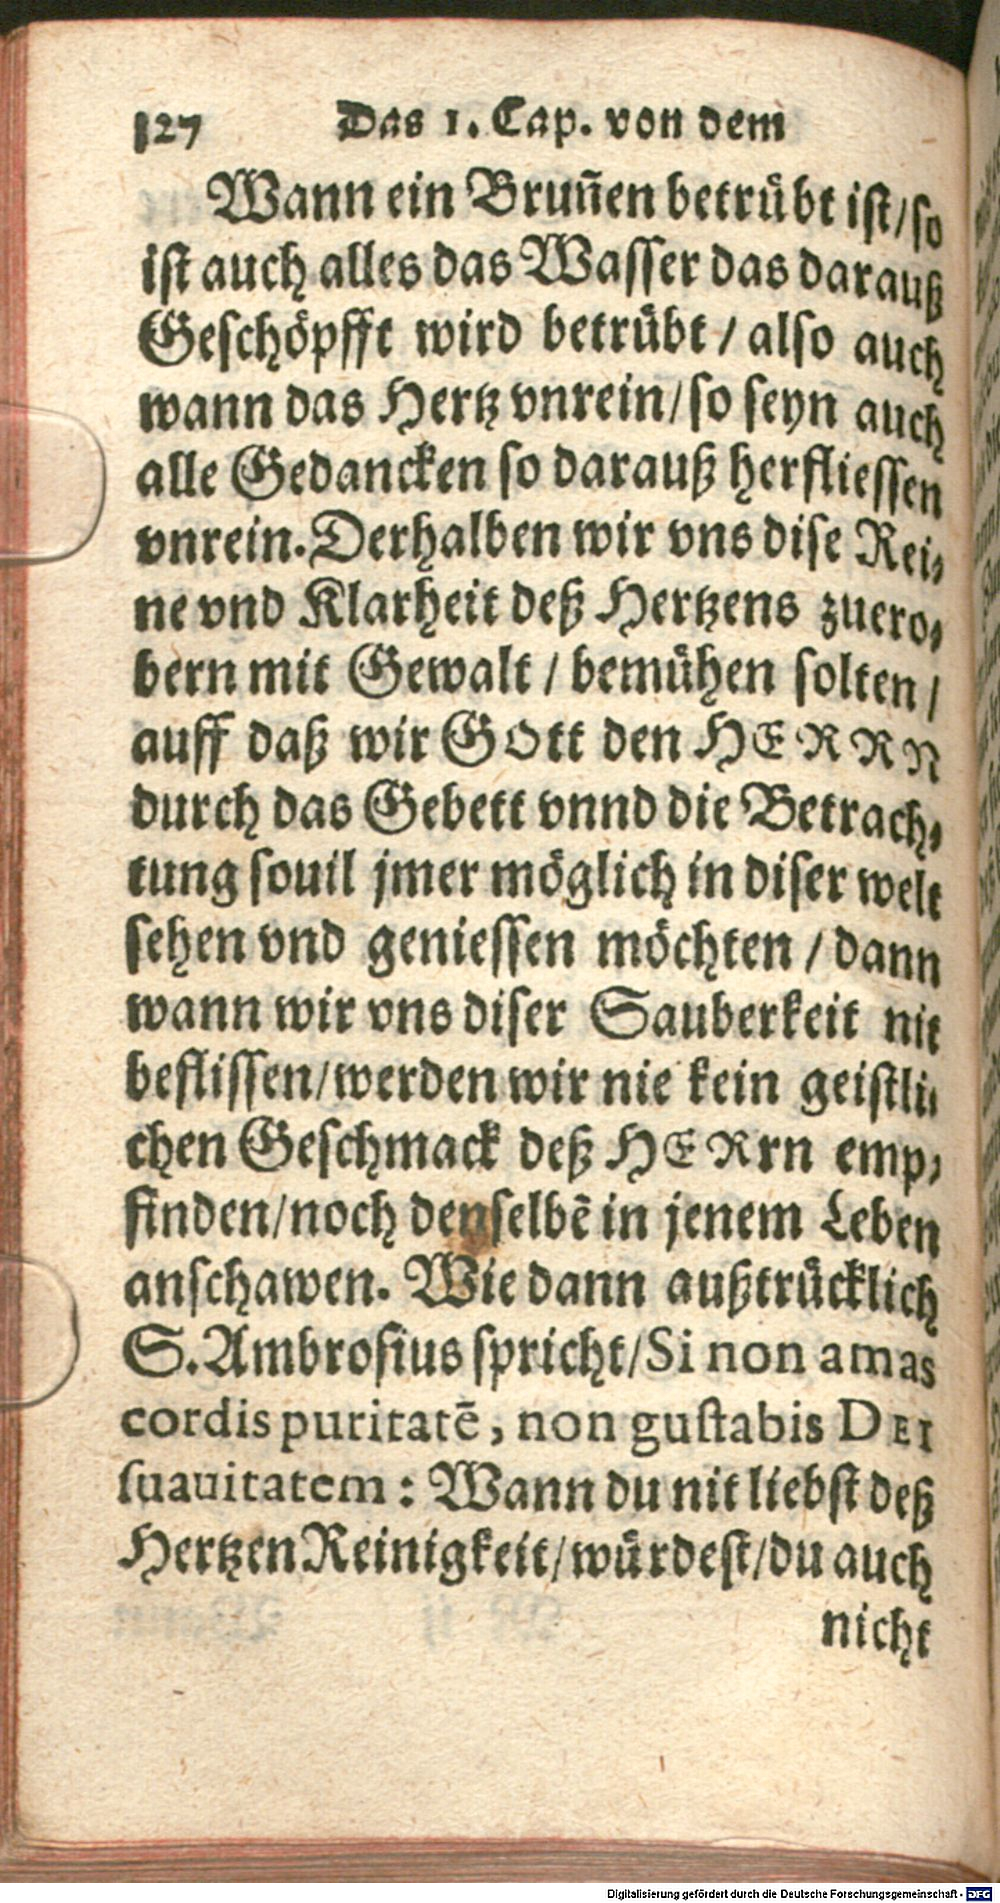 127 Das 1. Cap. von dem
Wann ein Bruñen betrübt ist/so
ist auch alles das Wasser das darauß
Geschöpfft wird betrübt / also auch
wann das Hertz vnrein/so seyn auch
alle Gedancken so darauß herfliessen
vnrein. Derhalben wir vns dise Rei-
ne vnd Klarheit deß Hertzens zuero-
bern mit Gewalt / bemühen solten /
auff daß wir GOtt den HERRN
durch das Gebett vnnd die Betrach-
tung souil jmer möglich in diser welt
sehen vnd geniessen möchten / dann
wann wir vns diser Sauberkeit nit
beflissen/werden wir nie kein geistli-
chen Geschmack deß HERrn emp-
finden/noch denselbẽ in jenem Leben
anschawen. Wie dann außtrücklich
S. Ambrosius spricht/Si non amas
cordis puritatē, non gustabis DEI
suauitatem: Wann du nit liebst deß
Hertzen Reinigkeit/würdest/du auch
nicht
Digitalisierung gefördert durch die Deutsche Forschungsgemeinschaft - DFG